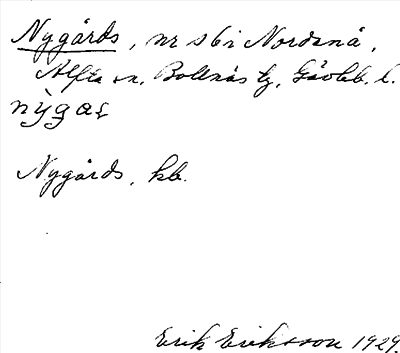 Nygårds, nr 5 b i Nordanå,
Alfta sn, Bollnäs tg, Gävleb. l.
nỳgaʂ
Nygårds, kb.
Erik Eriksson 1929.